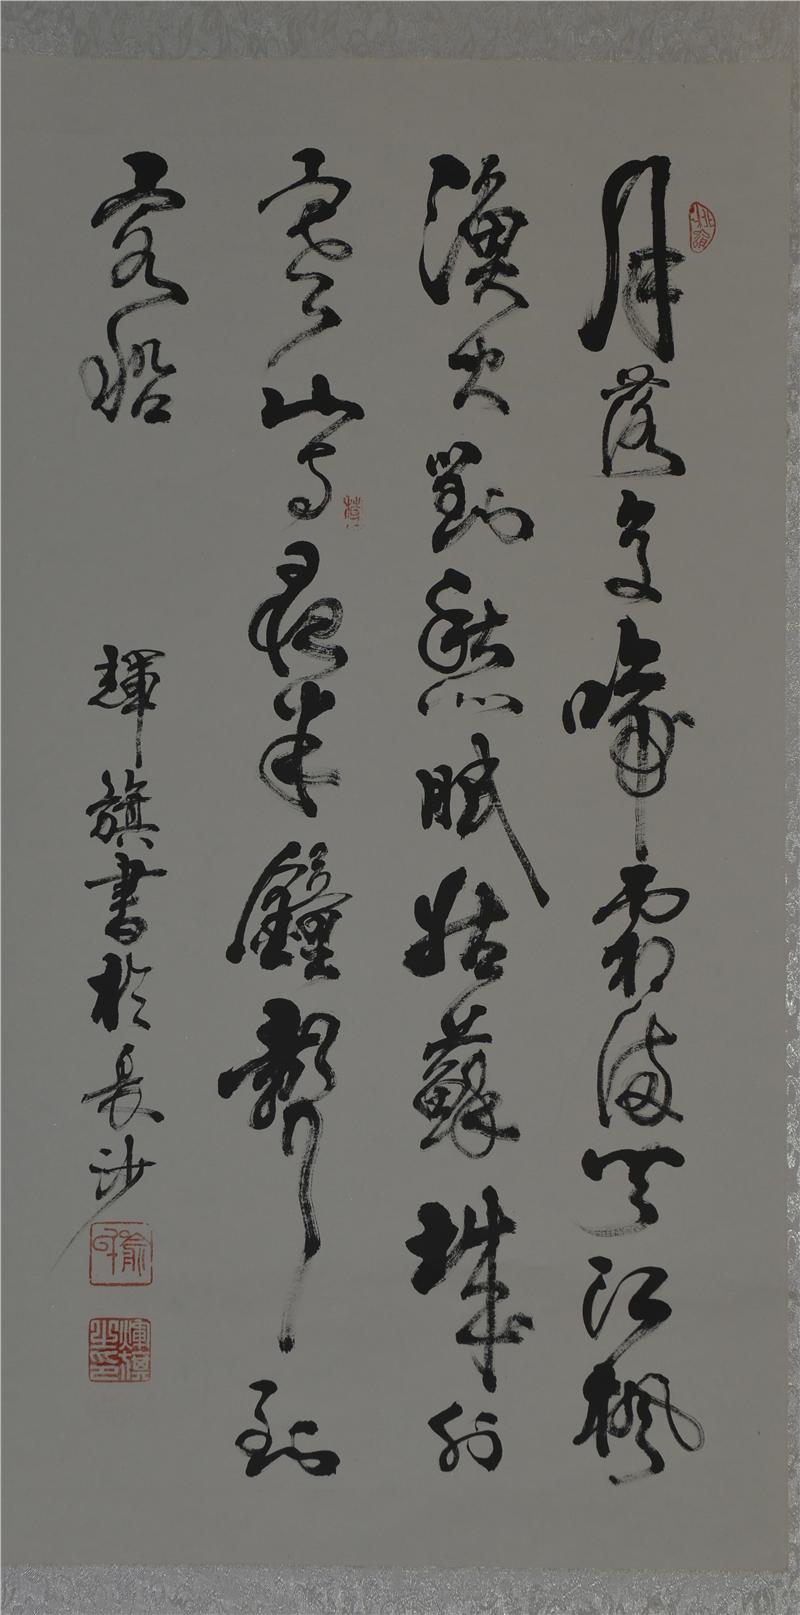 月落烏啼霜滿天江楓
漁火對愁眠姑蘇城外
寒山寺夜半鐘聲到
客船
輝旗書於長沙
輝旗之印